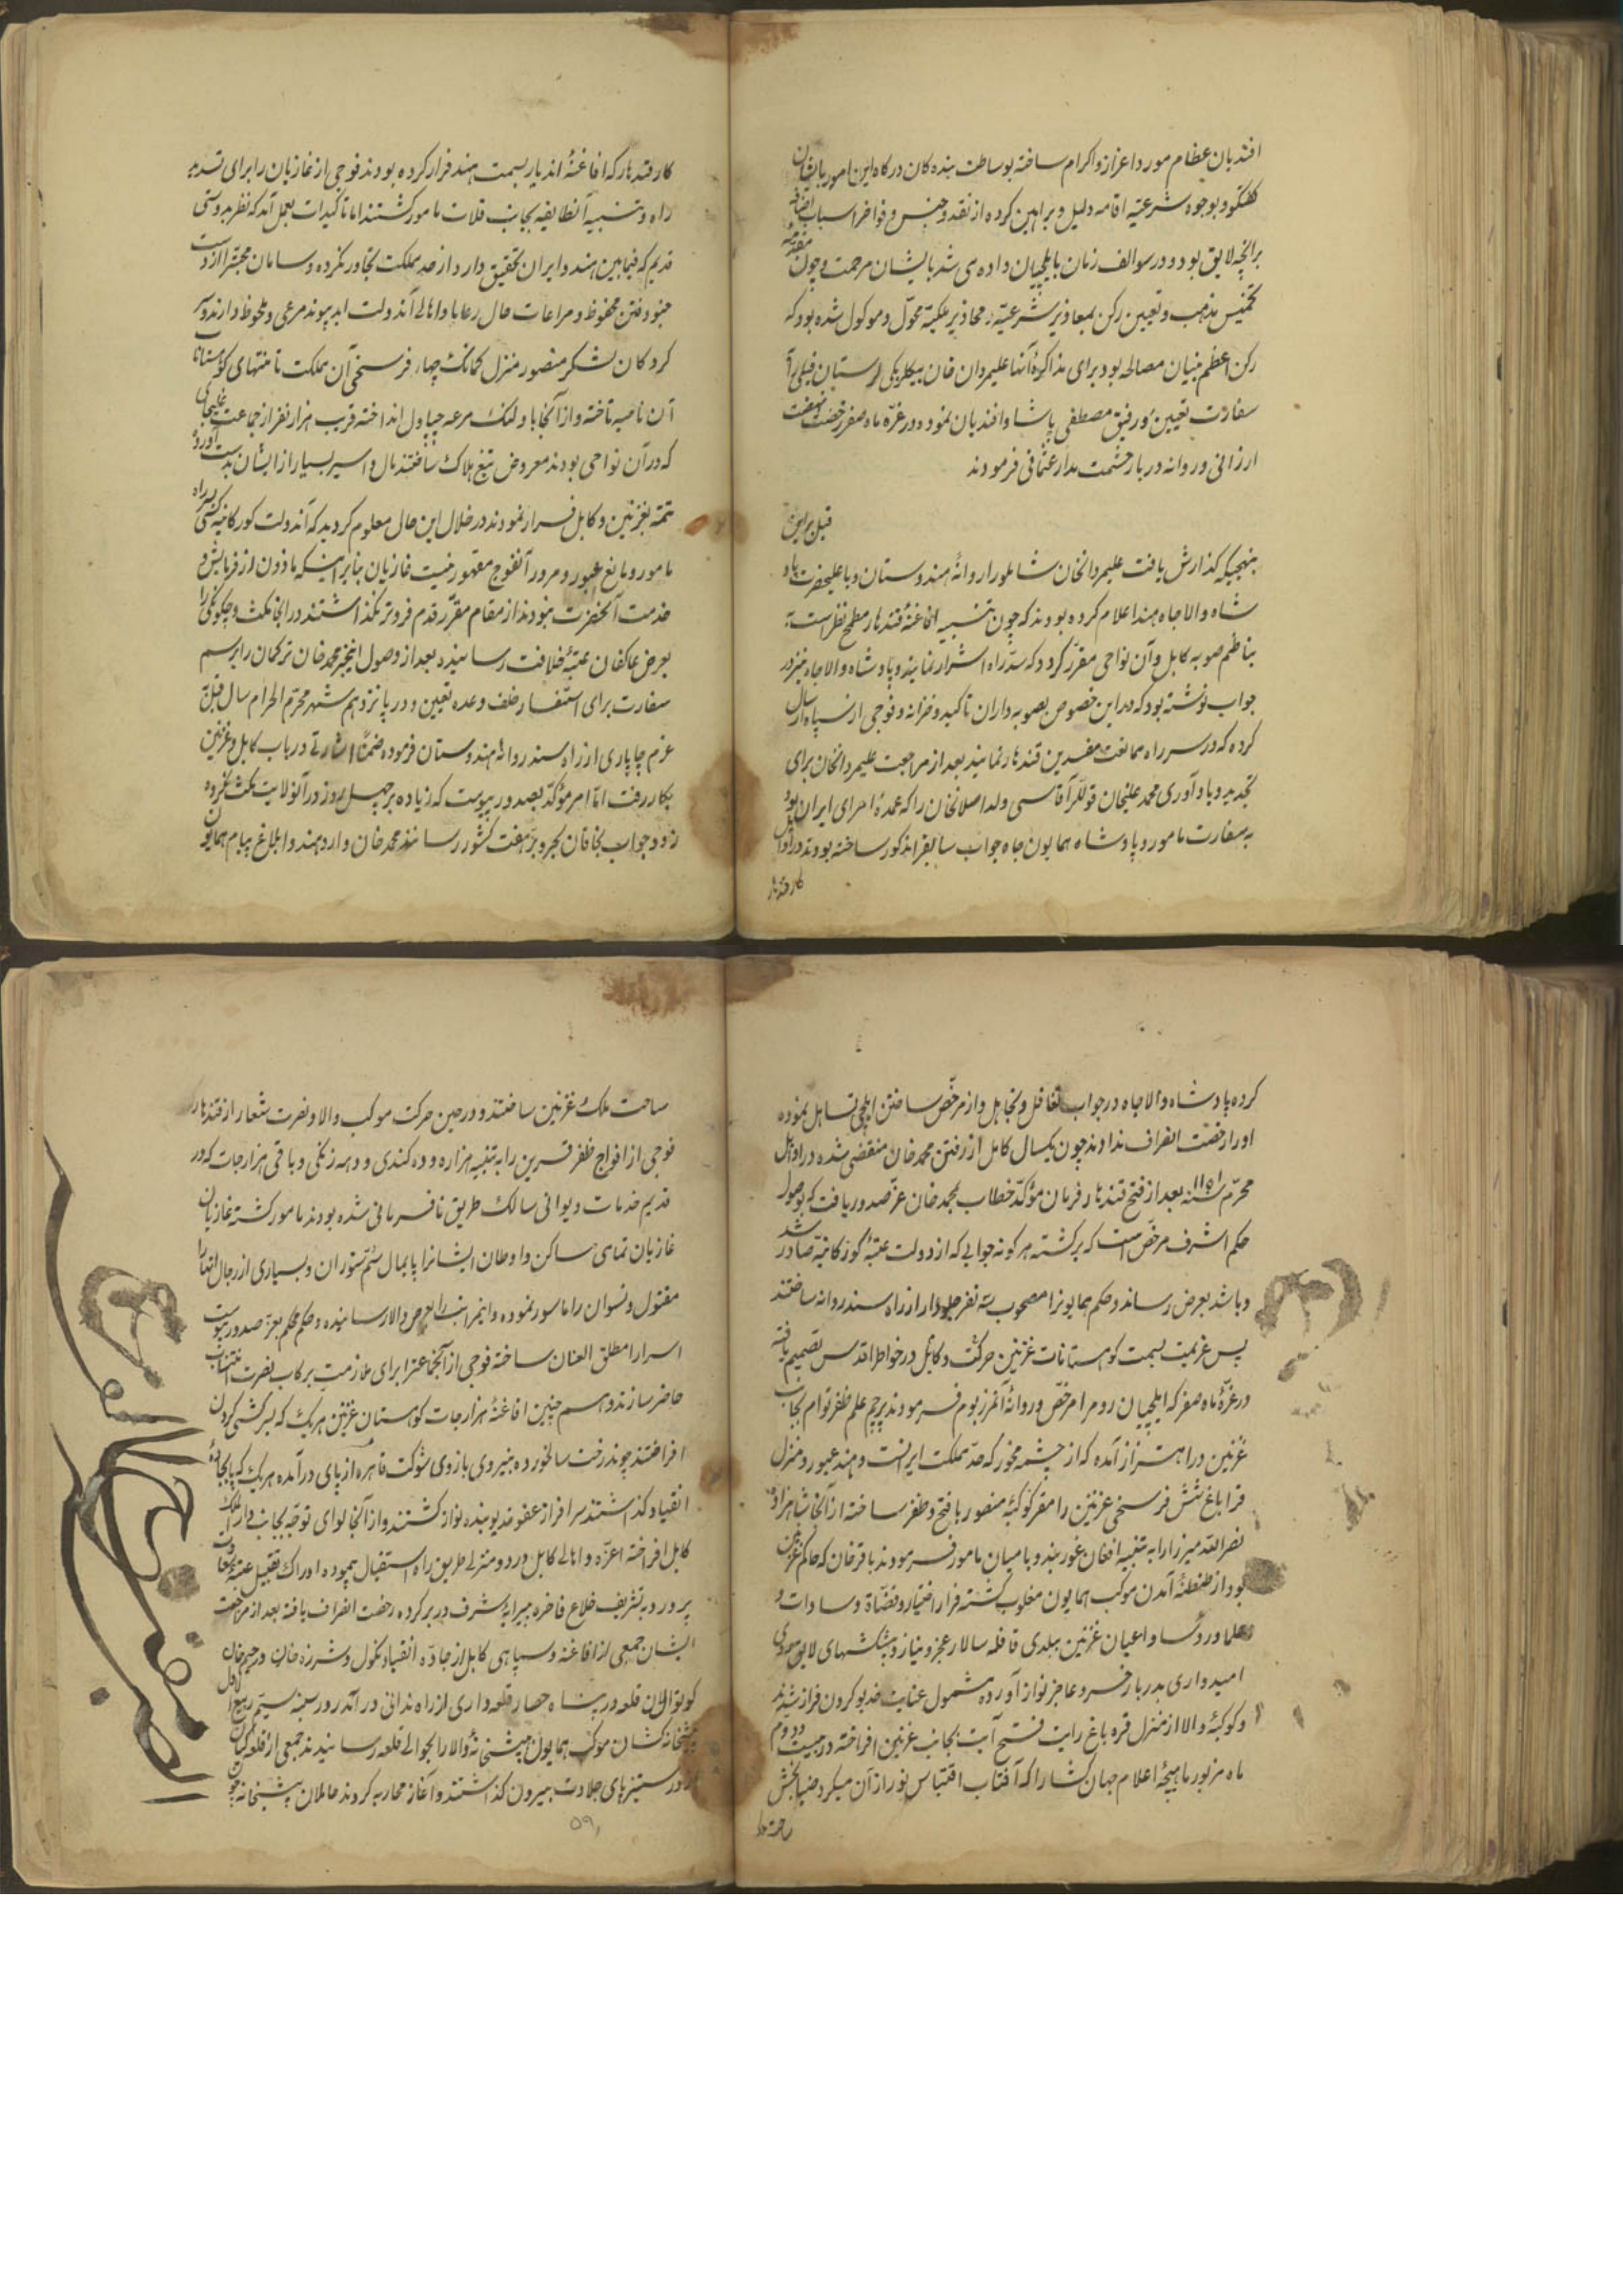 افندیان عظام مورد اعزاز و اکرام ساخته بوساطت بنده کان درکاه این امور بایشان
کفتکو و بوجوه شرعیه اقامه دلیل و براهین کرده از نقد و جنس و فواخر اسباب اضافه
برانچه لایق بود و در سوالف زمان بایلچیان داده می شد بایشان مرحمت و چون مقدمه
تخمیس مذهب و تعیین رکن بمعاذیر شرعیه و محاذیر ملکیه محول و موکول شده بود که
رکن اعظم بنیان مصالحه بود برای مذاکرهٔ آنها علیمردان خان بیکلربیکی لرستان فیلی را
سفارت تعیین و رفیق مصطفی پاشا و افندیان نمود و در غرّه ماه صفر رخصت نهضت
ارزانی و روانه دربار حشمت مدار عثمانی فرمودند
قبل براین
بنهجیکه کذارش یافت علیمردانخان شاملو را روانهٔ هندوستان و باعلیحضرت پاد
شاه والاجاه هند اعلام کرده بودند که چون تنبیه افاغنهٔ قندهار مطمح نظر است
بناظم صوبه کابل و آن نواحی مقرر کردد که سدّ راه اشرار نمایند و پادشاه والاجاه نیز در
جواب نوشته بود که در این خصوص بصوبه داران تاکید و خزانه و فوجی از سپاه ارسال
کرده که در سر راه ممانعت مفسدین قندهار نمایند بعد از مراجعت علیمردانخان برای
تجدید و یادآوری محمد علیخان قوللر آقاسی ولد اصلانخان را که عمدهٔ امرای ایران بود
به سفارت مامور و پادشاه همایون جاه جواب سابق را مذکور ساخته بودند در اوایل
کار قندهار
کار قندهار که افاغنهٔ اندیار بسمت هند فرار کرده بودند فوجی از غازیان را برای تسدید
راه و تنبیه آنطایفه بجانب قلات مامور کشتند اما تاکیدات بعمل آمد که نظر بدوستی
قدیم که فیمابین هند و ایران تحقیق دارد از حد مملکت تجاوز نکرده و سامان محبت را از دست
جنود فتن محفوظ و مراعات حال رعایا و اهالی آندولت ابد پیوند مرعی و ملحوظ دارند و سر
کردکان لشکر منصور منزل کمانک چهار فرسخی آن مملکت تا منتهای کوهستانات
آن ناحیه تاخته و از آنجا با ولنک مرعه چپاول انداخته قریب هزار نفر از جماعت غلیجای
که در آن نواحی بودند معروض تیغ هلاک ساختند مال و اسیر بسیار از ایشان بدست آورد
تتمه بغزنین و کابل فرار نمودند در خلال این حال معلوم کردید که آندولت کورکانیه کسی براه
مامور و مانع عبور و مرور آنفوج مقهور نیست غازیان بنابر اینکه ماذون از فرمایش و
خدمت آنحضرت نبودند از مقام مقرر قدم فروتر نکذاشتند در انجا مکث و چکونکی را
بعرض عاکفان عتبهٔ خلافت رسانیده بعد از وصول اینخبر محمد خان ترکمان را برسم
سفارت برای استفسار خلف وعده تعیین و در پانزدهم شهر محرم الحرام سال قبل بر
عزم چاپاری از راه سند روانهٔ هندوستان فرموده ضمناً اشارتی در باب کابل و غزنین
بکار رفت امّا امر مؤکد بصدور پیوست که زیاده بر چهل روز در آنولایت مکث نکرده
زود جواب بخاقان بحر و بر هفت کشور رسانند محمد خان وارد هند و ابلاغ پیام همایون
کرده پادشاه والاجاه در جواب تغافل و تجاهل و از مرخص ساختن ایلچی تساهل نموده
او را رخصت انفراف ندادند چون یکسال کامل از رفتن محمد خان منقضی شده در اوایل
محرّم سنه ۱۱۵۱ بعد از فتح قندهار فرمان مؤکد خطاب بمحمد خان عزّ صدور یافت که بوصول
حکم اشرف مرخص است که برکشته هر کونه جوابی که از دولت عتبهٔ کورکانیه صادر شد
و باشد بعرض رساند و حکم همایون را مصحوب سه نفر جلودار از راه سند روانه ساختند
پس عزیمت بسمت کوهستانات غزنین حرکت و کابل در خواطر اقدس تصمیم یافته
در غرّهٔ ماه صفر که ایلچیان روم را مرخص و روانهٔ آنمرز بوم فرمودند پرچم علم ظفر توام بجانب
غزنین در اهتزاز آمده که از چشمه مخور که حد مملکت ایرانست و هند عبور و منزل
قراباغ شش فرسخی غزنین را مقر کوکبهٔ منصور با فتح و ظفر ساخته از آنجا شاهزاده
نصرالله میرزا را به تنبیه افغان غوربند و بامیان مامور فرمودند باقر خان که حاکم غزنین
بود از طنطنهٔ آمدن موکب همایون مغلوب کشته فرار اختیار و قضاة و سادات و
علما و رؤسا و اعیان غزنین ببلدی قافله سالار عجز و نیاز و پیشکشهای لایق موروی
امیدواری بدربار خسرو عاجز نواز آورده مشمول عنایت خدیو کردون فراز شدند
و کوکبهٔ والا از منزل قره باغ رایت فتح آیت بجانب غزنین افراخته در بیست و دوم
ماه مزبور ماهیچهٔ اعلام جهان کشا را که آفتاب اقتباس نور از آن میکرد ضیابخش
ساحت ملک
ساحت ملک غزنین ساختند و در حین حرکت موکب والا و نصرت شعار از قندهار
فوجی از افواج ظفر قرین را به تنبیه هزاره و ده کندی و دسه زنکی و باقی هزارجات که در
قدیم خدمات دیوانی سالک طریق نافرمانی شده بودند مامور کشته غازیان
غازیان تمامی ساکن و اوطان ایشانرا پایمال سم ستوران و بسیاری از رجال انها را
مقتول و نسوان را ماسور نموده و اینمراتب را بعرض والا رسانیده و حکم محکم بعزّ صدور پیوست
اسرا را مطلق العنان ساخته فوجی از آنجماعت را برای ملازمت برکاب نصرت انتساب
حاضر سازند و همچنین افاغنهٔ هزارجات کوهستان غزنین هریک که بسرکشی کردن
افراختند چوندرخت سالخورده بنیروی بازوی شوکت قاهره از پای درآمده هریک که پا بجادهٔ
انقیاد کذاشتند سرافراز عفو خدیو بنده نواز کشتند و از آنجا لوای توجّه بجانب دارالملک
کابل افراخته اعزّه و اهالی کابل در دو منزلی طریق راه استقبال پیموده ادراک تقبیل عتبهٔ
پرورد به تشریف خلاع فاخره پیرایهٔ شرف در بر کرده رخصت انفراف یافته بعد از مراجعت
ایشان جمعی از افاغنه و سپاهی کابل از جادهٔ انقیاد نکول و شرزه خان و رحیم خان
کوتوالان قلعه در پناه حصار قلعه داری از راه ندانی درآمد روز سه شنبه سیم ربیع الاول
پیشخانه کشان موکب همایون پیشخانهٔ والا را بحوالی قلعه رسانیدند جمعی از قلعه کیان
از در ستیز پای جلادت بیرون کذاشتند و آغاز محاربه کردند حاملان پیشخانه چون
۵۹